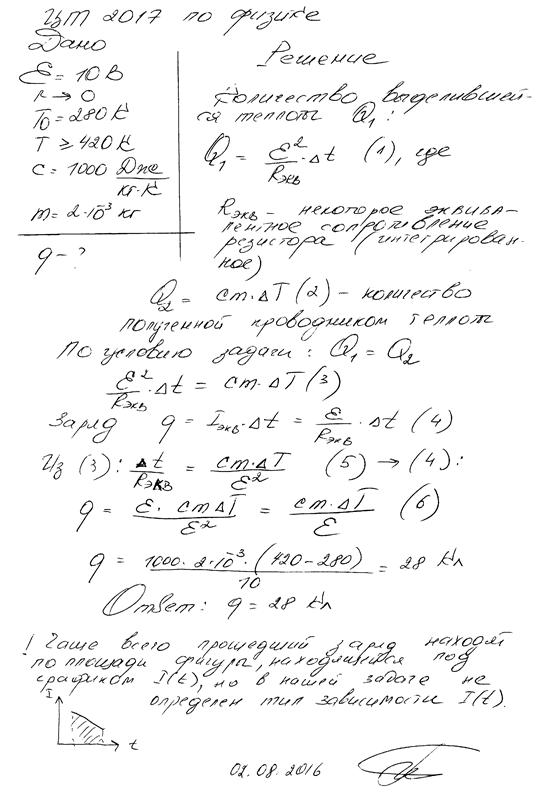 ЦТ 2017 по физике
Дано
Решение
ℰ = 10 В
r → 0
T₀ = 280 К
T ≥ 420 К
c = 1000 Дж/кг·К
m = 2·10⁻³ кг
q - ?
Количество выделившей-
ся теплоты Q₁:
Q₁ = ℰ²/Rэкв · Δt (1), где
Rэкв - некоторое эквива-
лентное сопротивление
резистора (интегрирован-
ное)
Q₂ = cm·ΔT (2) - количество
полученной проводником теплоты
По условию задачи: Q₁ = Q₂
ℰ²/Rэкв · Δt = cm·ΔT (3)
Заряд q = Iэкв·Δt = ℰ/Rэкв · Δt (4)
Из (3): Δt/Rэкв = cm·ΔT/ℰ² (5) → (4):
q = ℰ·cmΔT/ℰ² = cm·ΔT/ℰ (6)
q = 1000·2·10⁻³·(420-280)/10 = 28 Кл
Ответ: q = 28 Кл
! Чаще всего прошедший заряд находят
по площади фигуры, находящейся под
графиком I(t), но в нашей задаче не
определен тип зависимости I(t).
I
t
02.08.2016